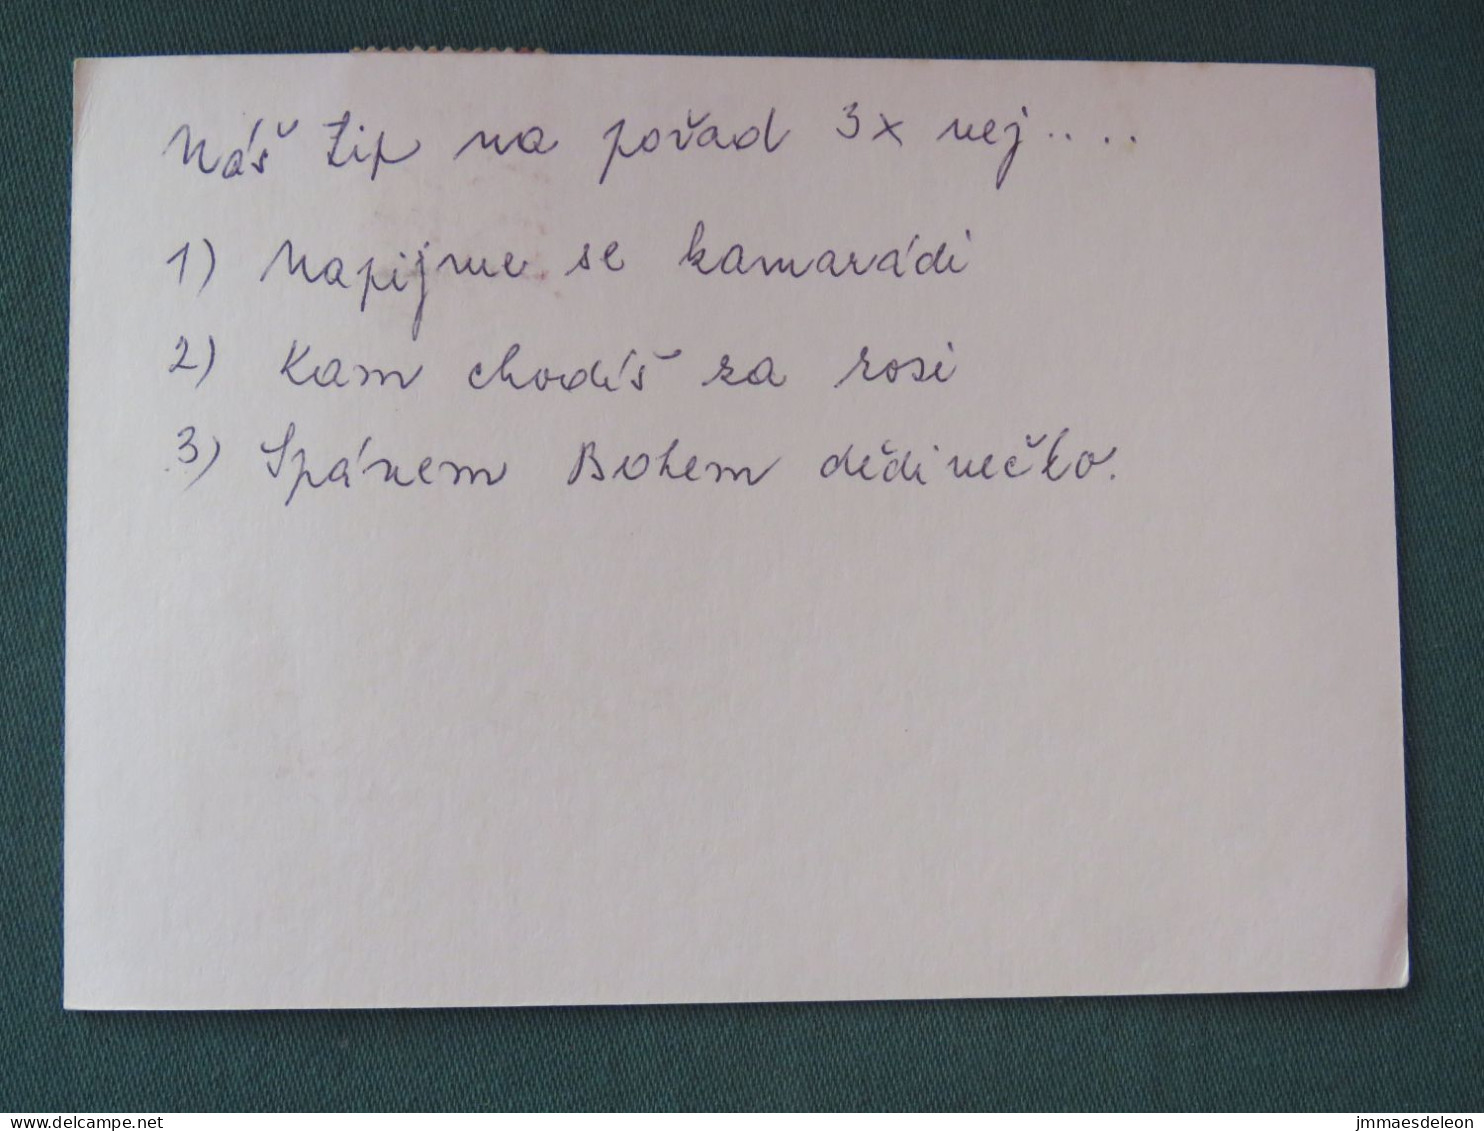 Náš tip na pořad 3x nej....
1) Napijme se kamarádi
2) Kam chodíš za rosi
3) Spánem Bohem dědinečko.
jmmaesdeleon
www.delcampe.net